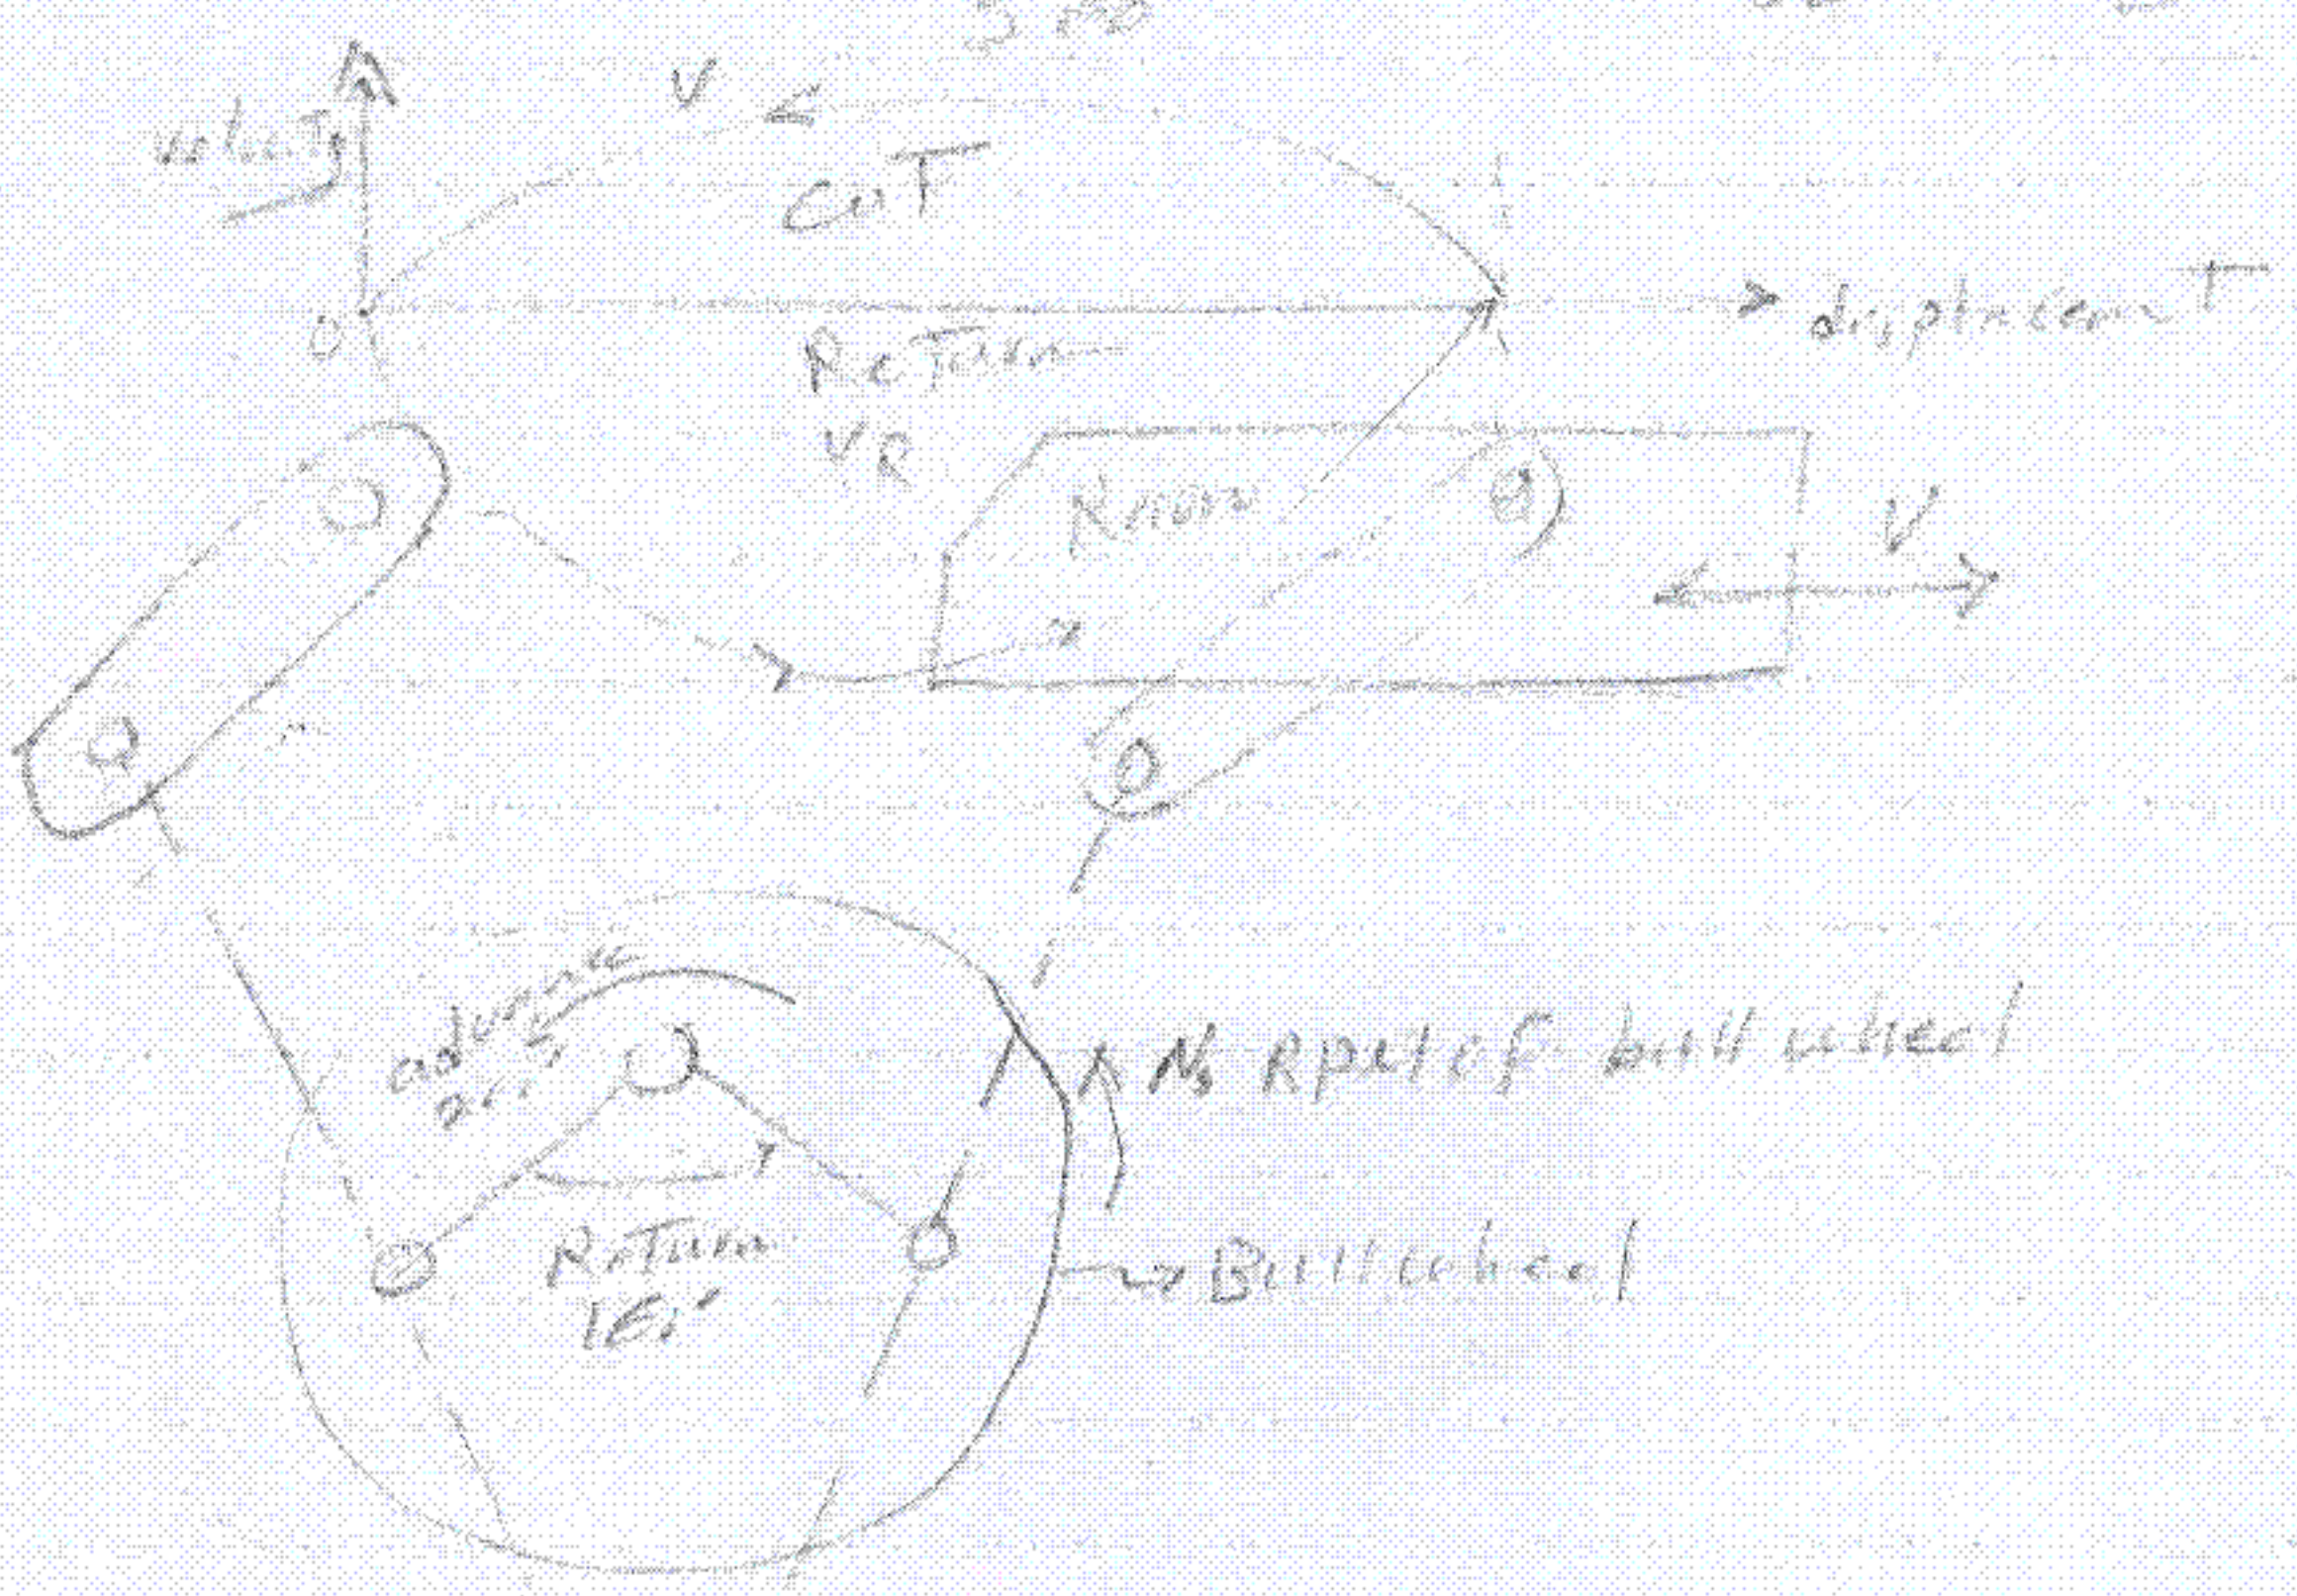 velocity
V
CuT
O
displacemenT
ReTurn
VR
V
advance
Ns Rpm of bull wheel
ReTurn
Bull wheel